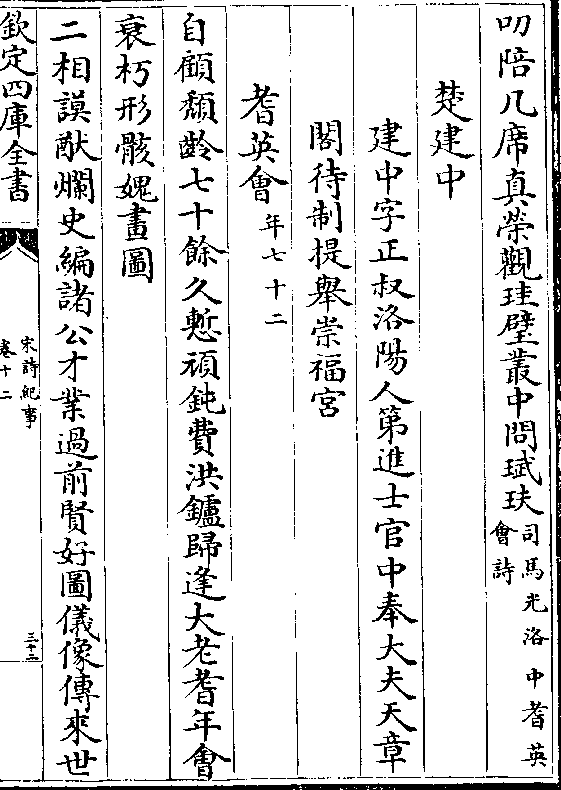 叨陪几席真榮觀珪璧叢中問珷玞司馬光洛中耆英
會詩
楚建中
建中字正叔洛陽人第進士官中奉大夫天章
閣待制提舉崇福宮
耆英會年七十二
自顧頽齡七十餘久慙頑鈍費洪鑪歸逢大老耆年會
衰朽形骸媿畫圖
二相謨猷爛史編諸公才業過前賢好圖儀像傳來世
欽定四庫全書
宋詩紀事
卷十二
三十二